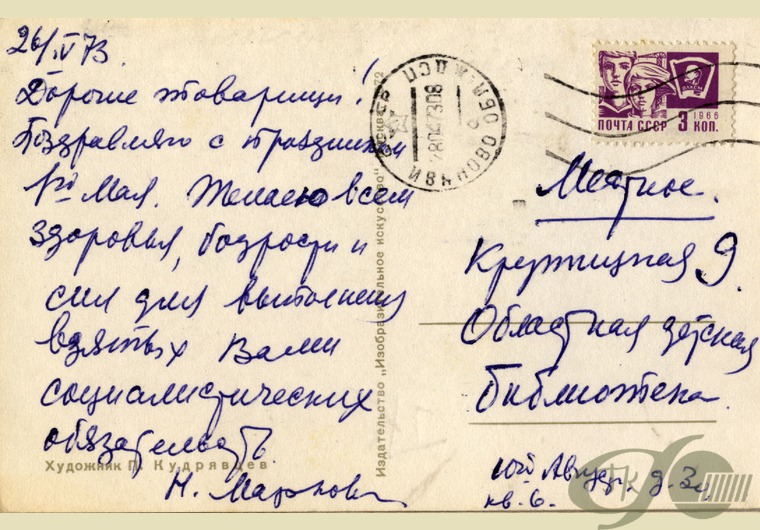 26/IV 73.
Дорогие товарищи!
Поздравляю с праздником
1го Мая. Желаю всем
здоровья, бодрости и
сил для выполнения
взятых Вами
социалистических
обязательств.
Н. Маркова
Художник П. Кудрявцев
Издательство „Изобразительное искусство" Москва
ПОЧТА СССР 3 КОП.
1966
ВЛКСМ
Местное.
Крутицкая 9.
Областная детская
библиотека
кв. 6.